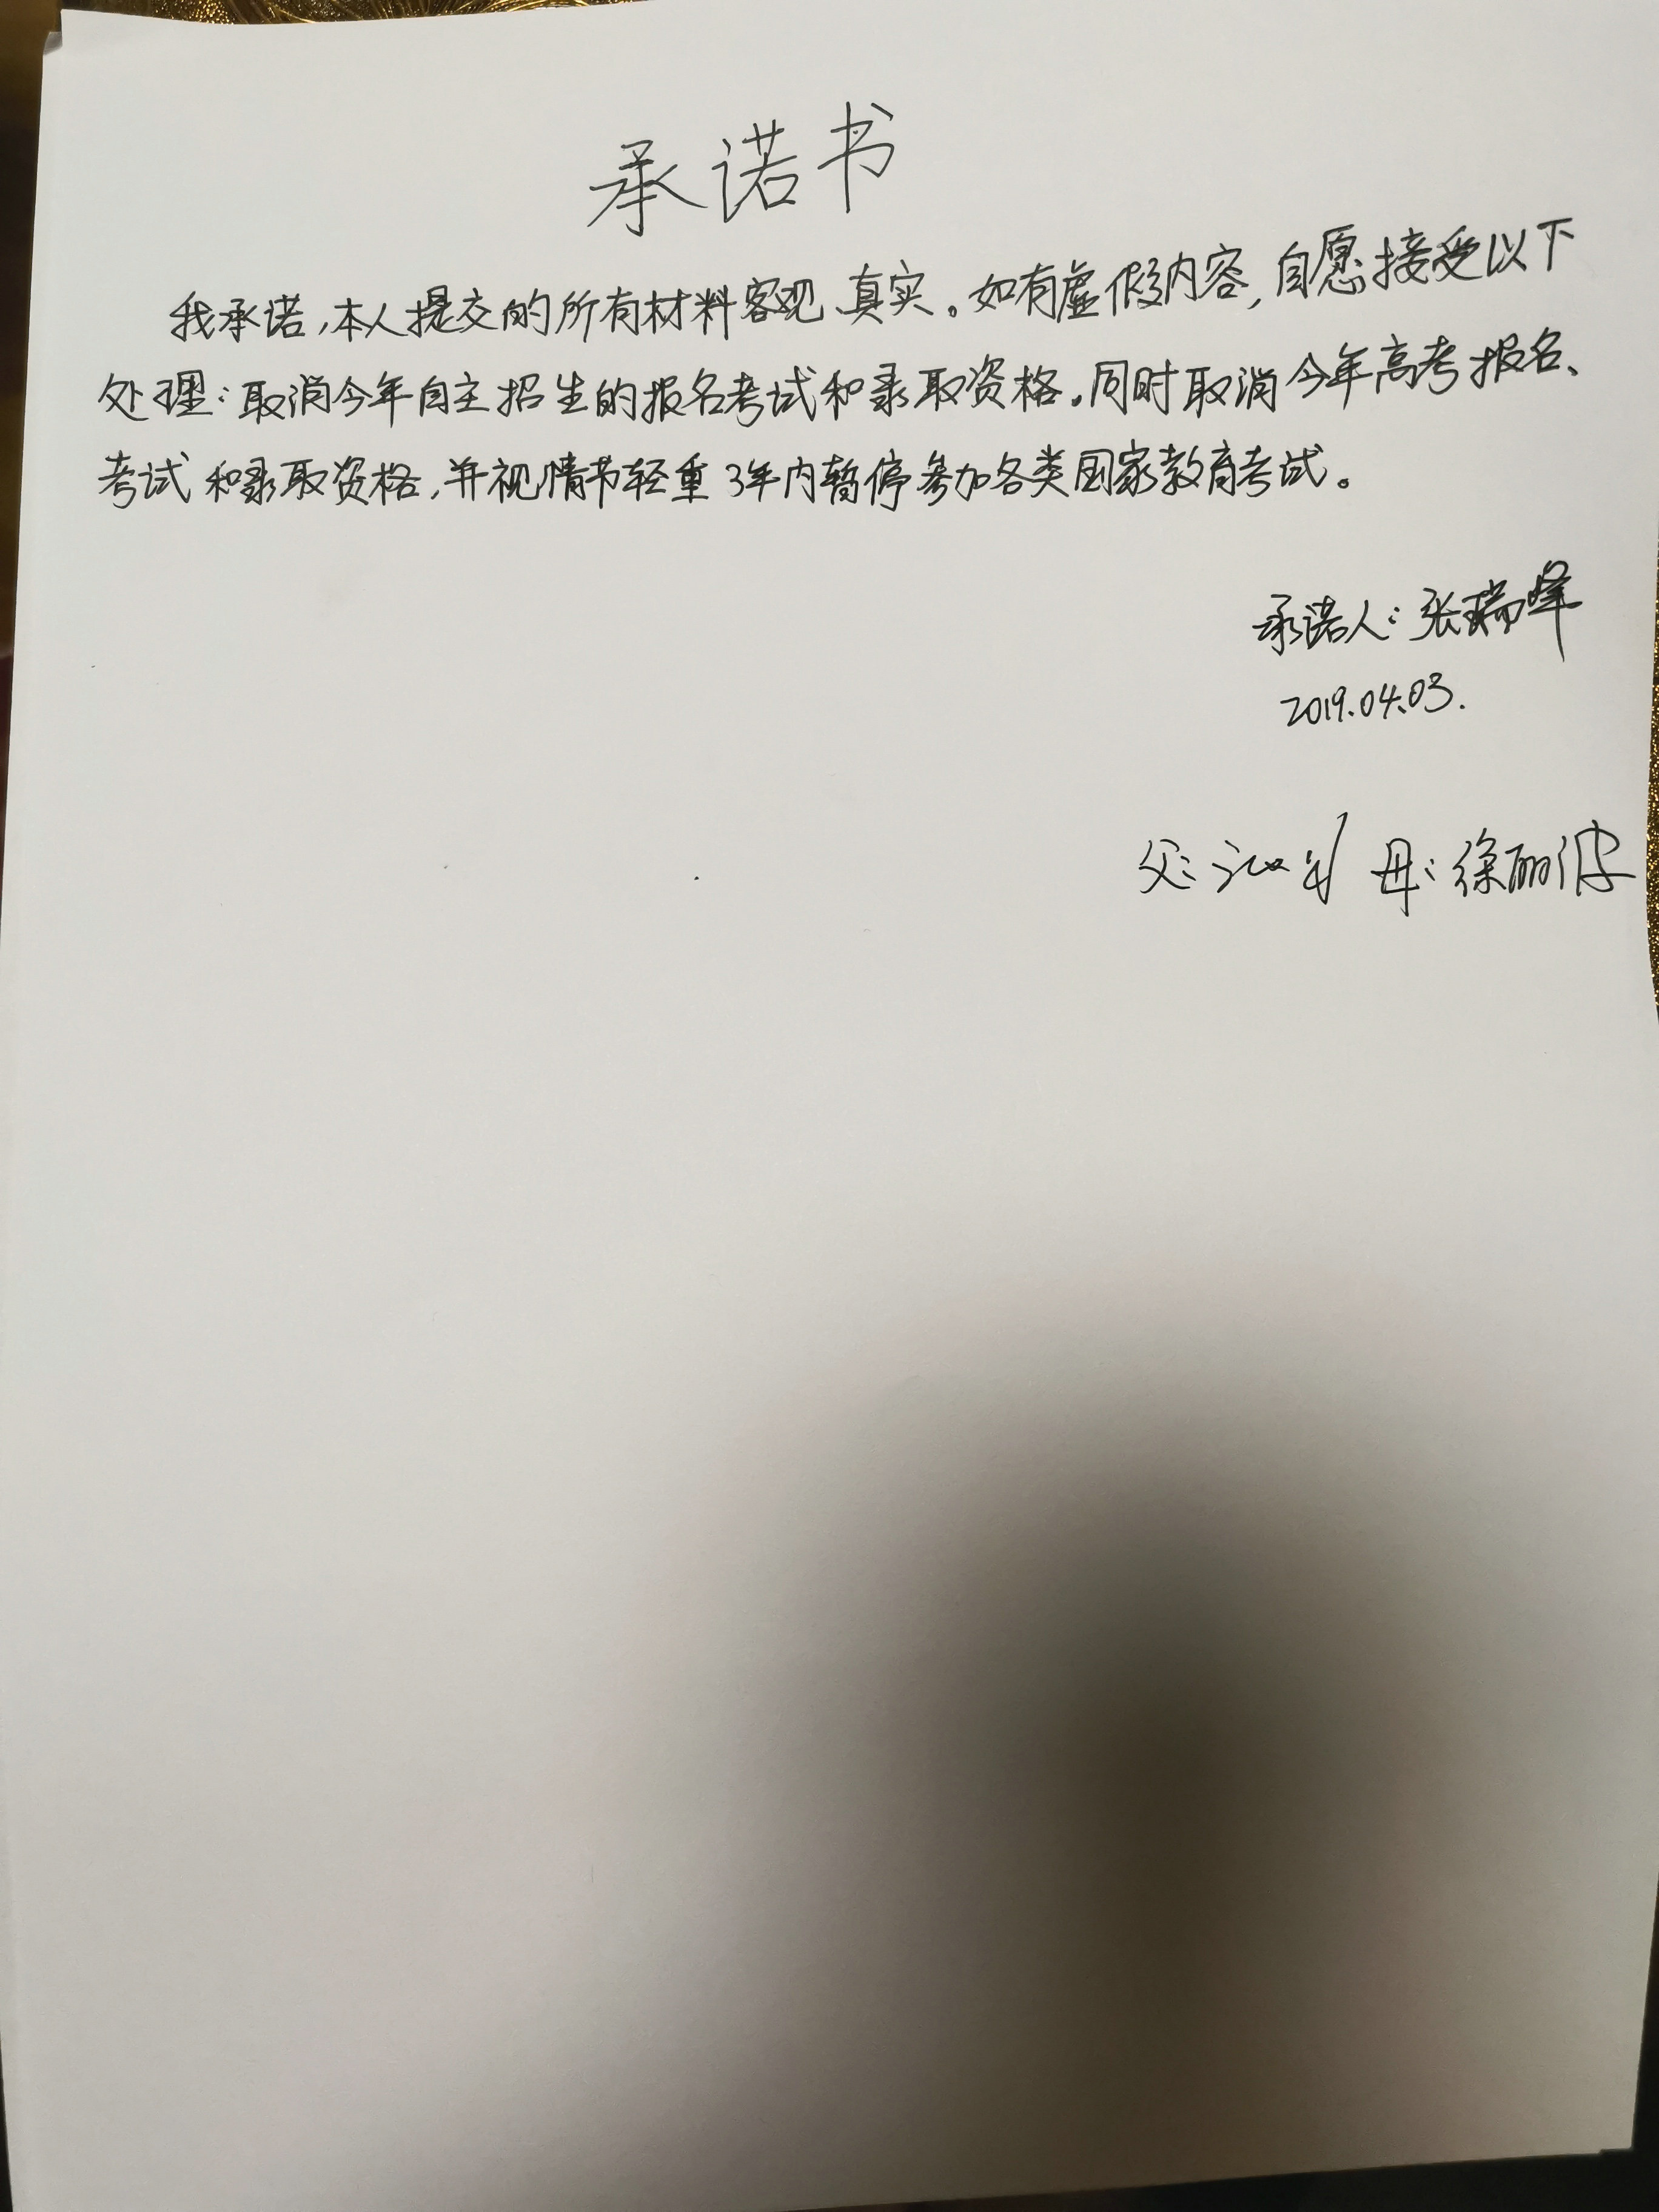 承诺书
我承诺,本人提交的所有材料客观、真实。如有虚假内容,自愿接受以下
处理:取消今年自主招生的报名考试和录取资格。同时取消今年高考报名、
考试和录取资格,并视情节轻重3年内暂停参加各类国家教育考试。
承诺人:张瑞峰
2019.04.03.
父: 母:徐丽波